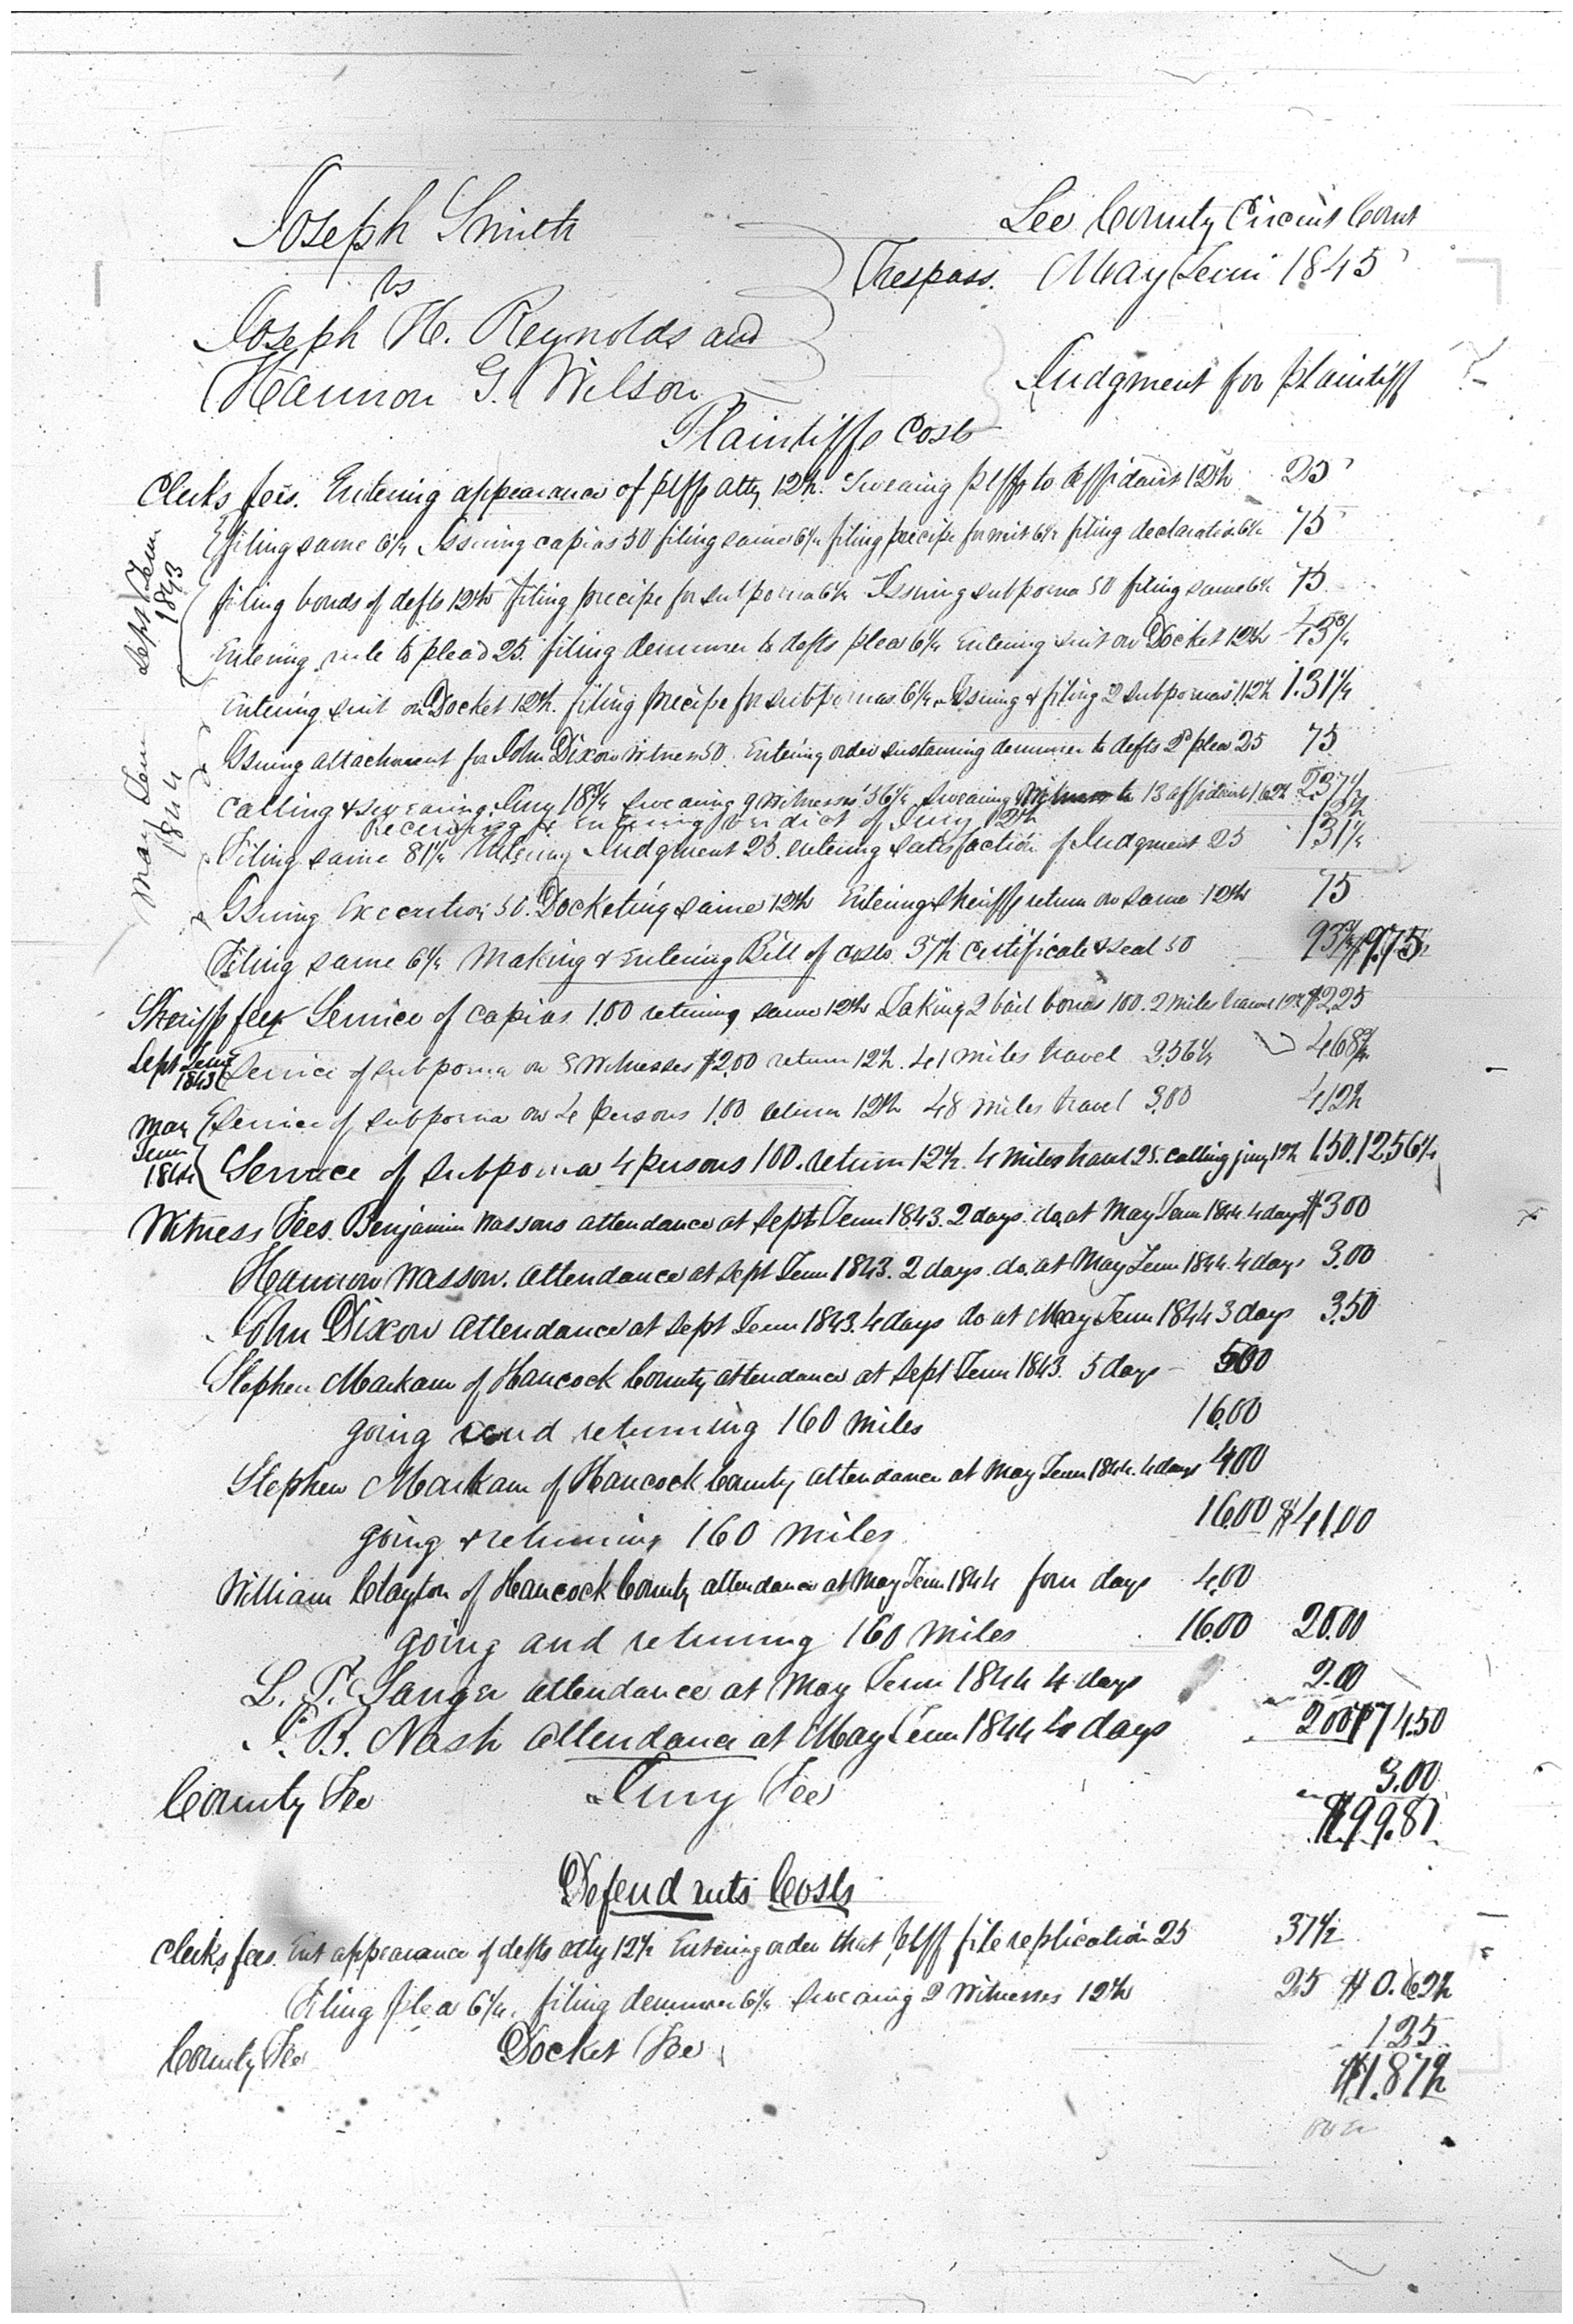 Joseph Smith
Lee County Circuit Court
vs
Trespass. May Term 1845
Joseph H. Reynolds and
Harmon G. Wilson
Judgment for plaintiff
Plaintiffs Costs
Clerks fees. Entering appearance of plffs atty 12½. Swearing plff to affidavit 12½ 25
Sept Term 1843
filing same 6¼ Issuing capias 50 filing same 6¼ filing precipe for writ 6¼ filing declaration 6¼ 75
filing bonds of defts 12½ filing precipe for subpoena 6¼ Issuing subpoena 50 filing same 6¼ 75
Entering rule to plead 25. filing demurrer to defts plea 6¼ Entering suit on Docket 12½ 43¾
May Term 1844
Entering suit on Docket 12½. filing precipe for subpoenas 6¼. Issuing & filing 2 subpoenas 1.12½ 1.31¼
Issuing attachment for John Dixon witness 50. Entering order sustaining demurrer to defts 2d plea 25 75
calling & swearing Jury 18¾ swearing 9 witnesses 56¼ swearing 13 affidavit 1.62½ 2.37½
Receiving & entering verdict of Jury 12½ 12½
Filing same 81¼ Entering Judgment 25. entering satisfaction of Judgment 25 1.31¼
Issuing Execution 50. Docketing same 12½ Entering Sheriffs return on same 12½ 75
Filing same 6¼ Making & Entering Bill of costs 37½ certificate & seal 50 93¾ $9.75
Sheriffs fees Service of capias 1.00 returning same 12½ Taking 2 bail bonds 100. 2 miles travel 12½ $2.25
Sept Term 1843 Service of subpoena on 8 Witnesses $2.00 return 12½. 41 miles travel 2.56¼ 4.68¾
May Term 1844 Service of subpoena on 4 persons 1.00 return 12½ 48 miles travel 3.00 4.12½
Service of subpoena 4 persons 100. return 12½. 4 miles travel 25. calling jury 12½ 1.50. 12.56¼
Witness Fees. Benjamin Wassons attendance at Sept Term 1843. 2 days. do. at May Term 1844. 4 days $3.00
Harmon Wasson. attendance at Sept Term 1843. 2 days. do. at May Term 1844. 4 days 3.00
John Dixon attendance at Sept Term 1843. 4 days do at May Term 1844 3 days 3.50
Stephen Markam of Hancock County attendance at Sept Term 1843. 5 days - 5.00
going and returning 160 miles 16.00
Stephen Markam of Hancock County attendance at May Term 1844. 4 days 4.00
going & returning 160 miles 16.00 $41.00
William Clayton of Hancock County attendance at May Term 1844 four days 4.00
going and returning 160 miles 16.00 20.00
L. P. Sanger attendance at May Term 1844 4 days 2.00
P. B. Nash attendance at May Term 1844 4 days 2.00 $74.50
County Fee Jury Fee 3.00
$99.81
Defendants Costs
Clerks fees. Ent appearance of defts atty 12½ Entering order that plff file replication 25 .37½
Filing plea 6¼. filing demurrer 6¼ swearing 2 Witnesses 12½ 25 $0.62½
County Fee Docket Fee 1.25
$1.87½